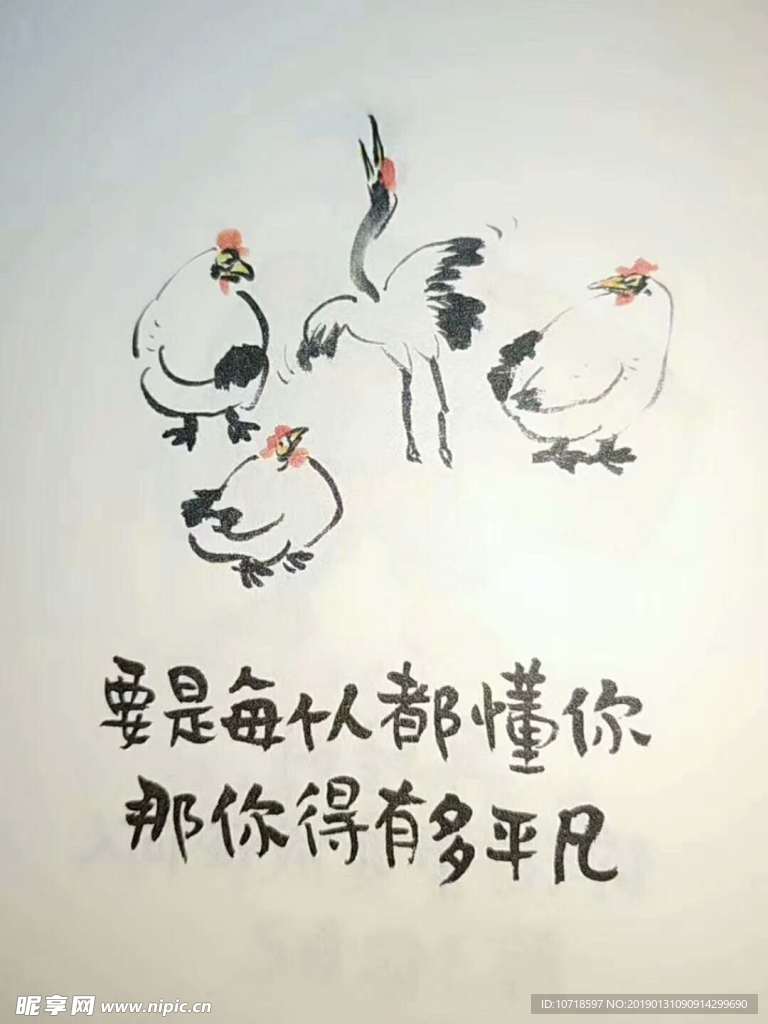 要是每个人都懂你
那你得有多平凡
昵享网 www.nipic.cn
ID:10718597 NO:20190131090914299690